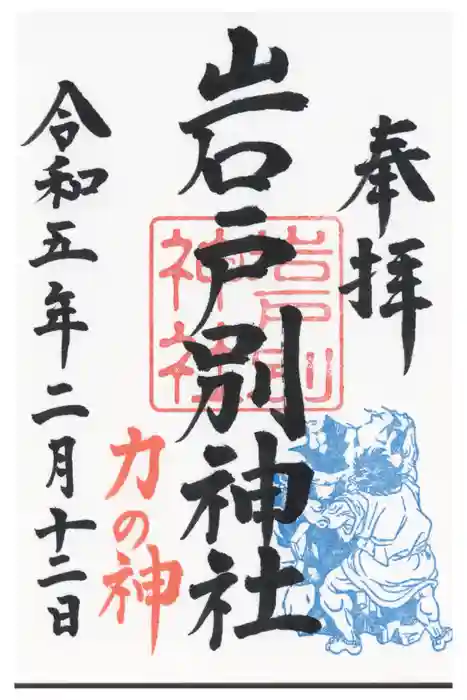 奉拝
岩戸別神社
岩戸別
神社
力の神
令和五年二月十二日